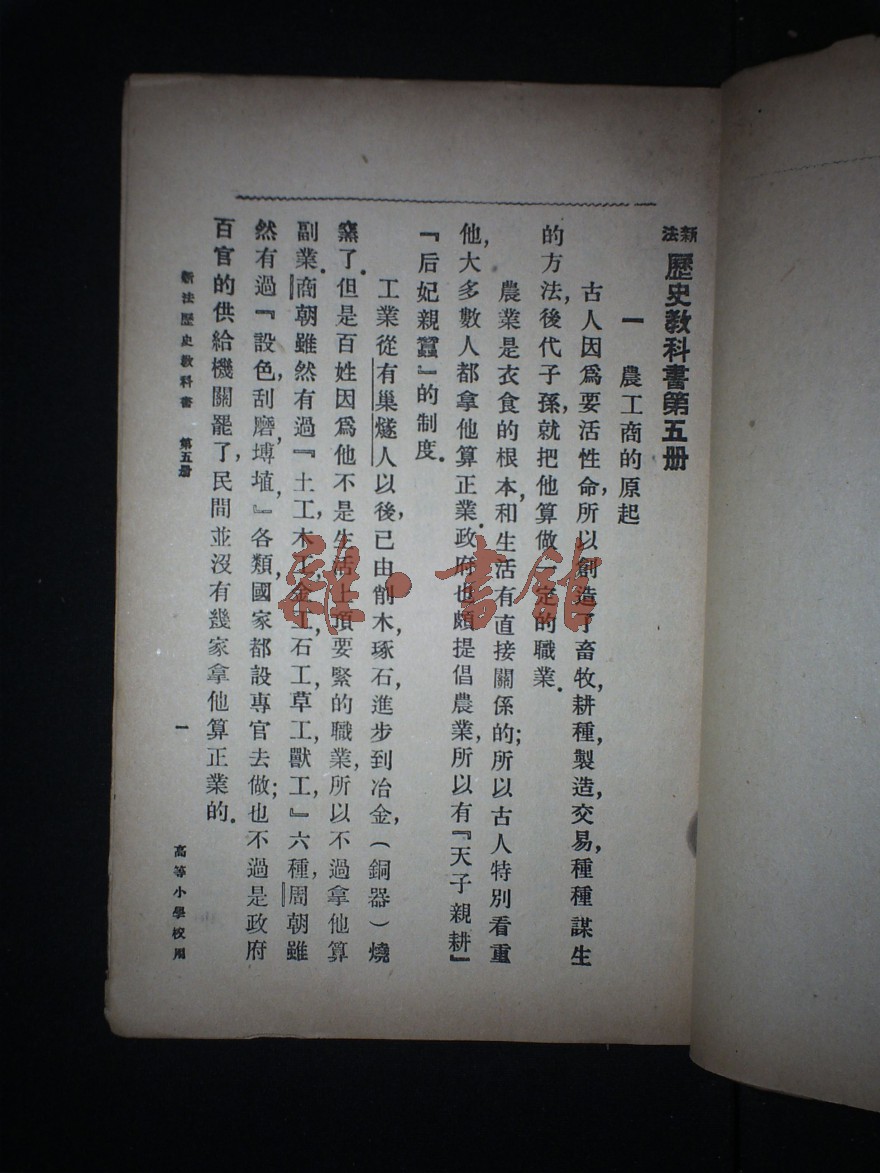 新法歷史教科書第五册
一　農工商的原起
古人因爲要活性命，所以創造了畜牧，耕種，製造，交易，種種謀生
的方法，後代子孫，就把他算做一定的職業。
農業是衣食的根本，和生活有直接關係的；所以古人特別看重
他，大多數人都拿他算正業。政府也頗提倡農業，所以有『天子親耕』
『后妃親蠶』的制度。
工業從有巢燧人以後，已由削木，琢石，進步到冶金，（銅器）燒
窯了。但是百姓因爲他不是生活上頂要緊的職業，所以不過拿他算
副業。商朝雖然有過『土工，木工，金工，石工，草工，獸工，』六種，周朝雖
然有過『設色，刮磨，塼埴，』各類，國家都設專官去做；也不過是政府
百官的供給機關罷了，民間並沒有幾家拿他算正業的。
新法歷史教科書　第五册
一
高等小學校用
雜·書館